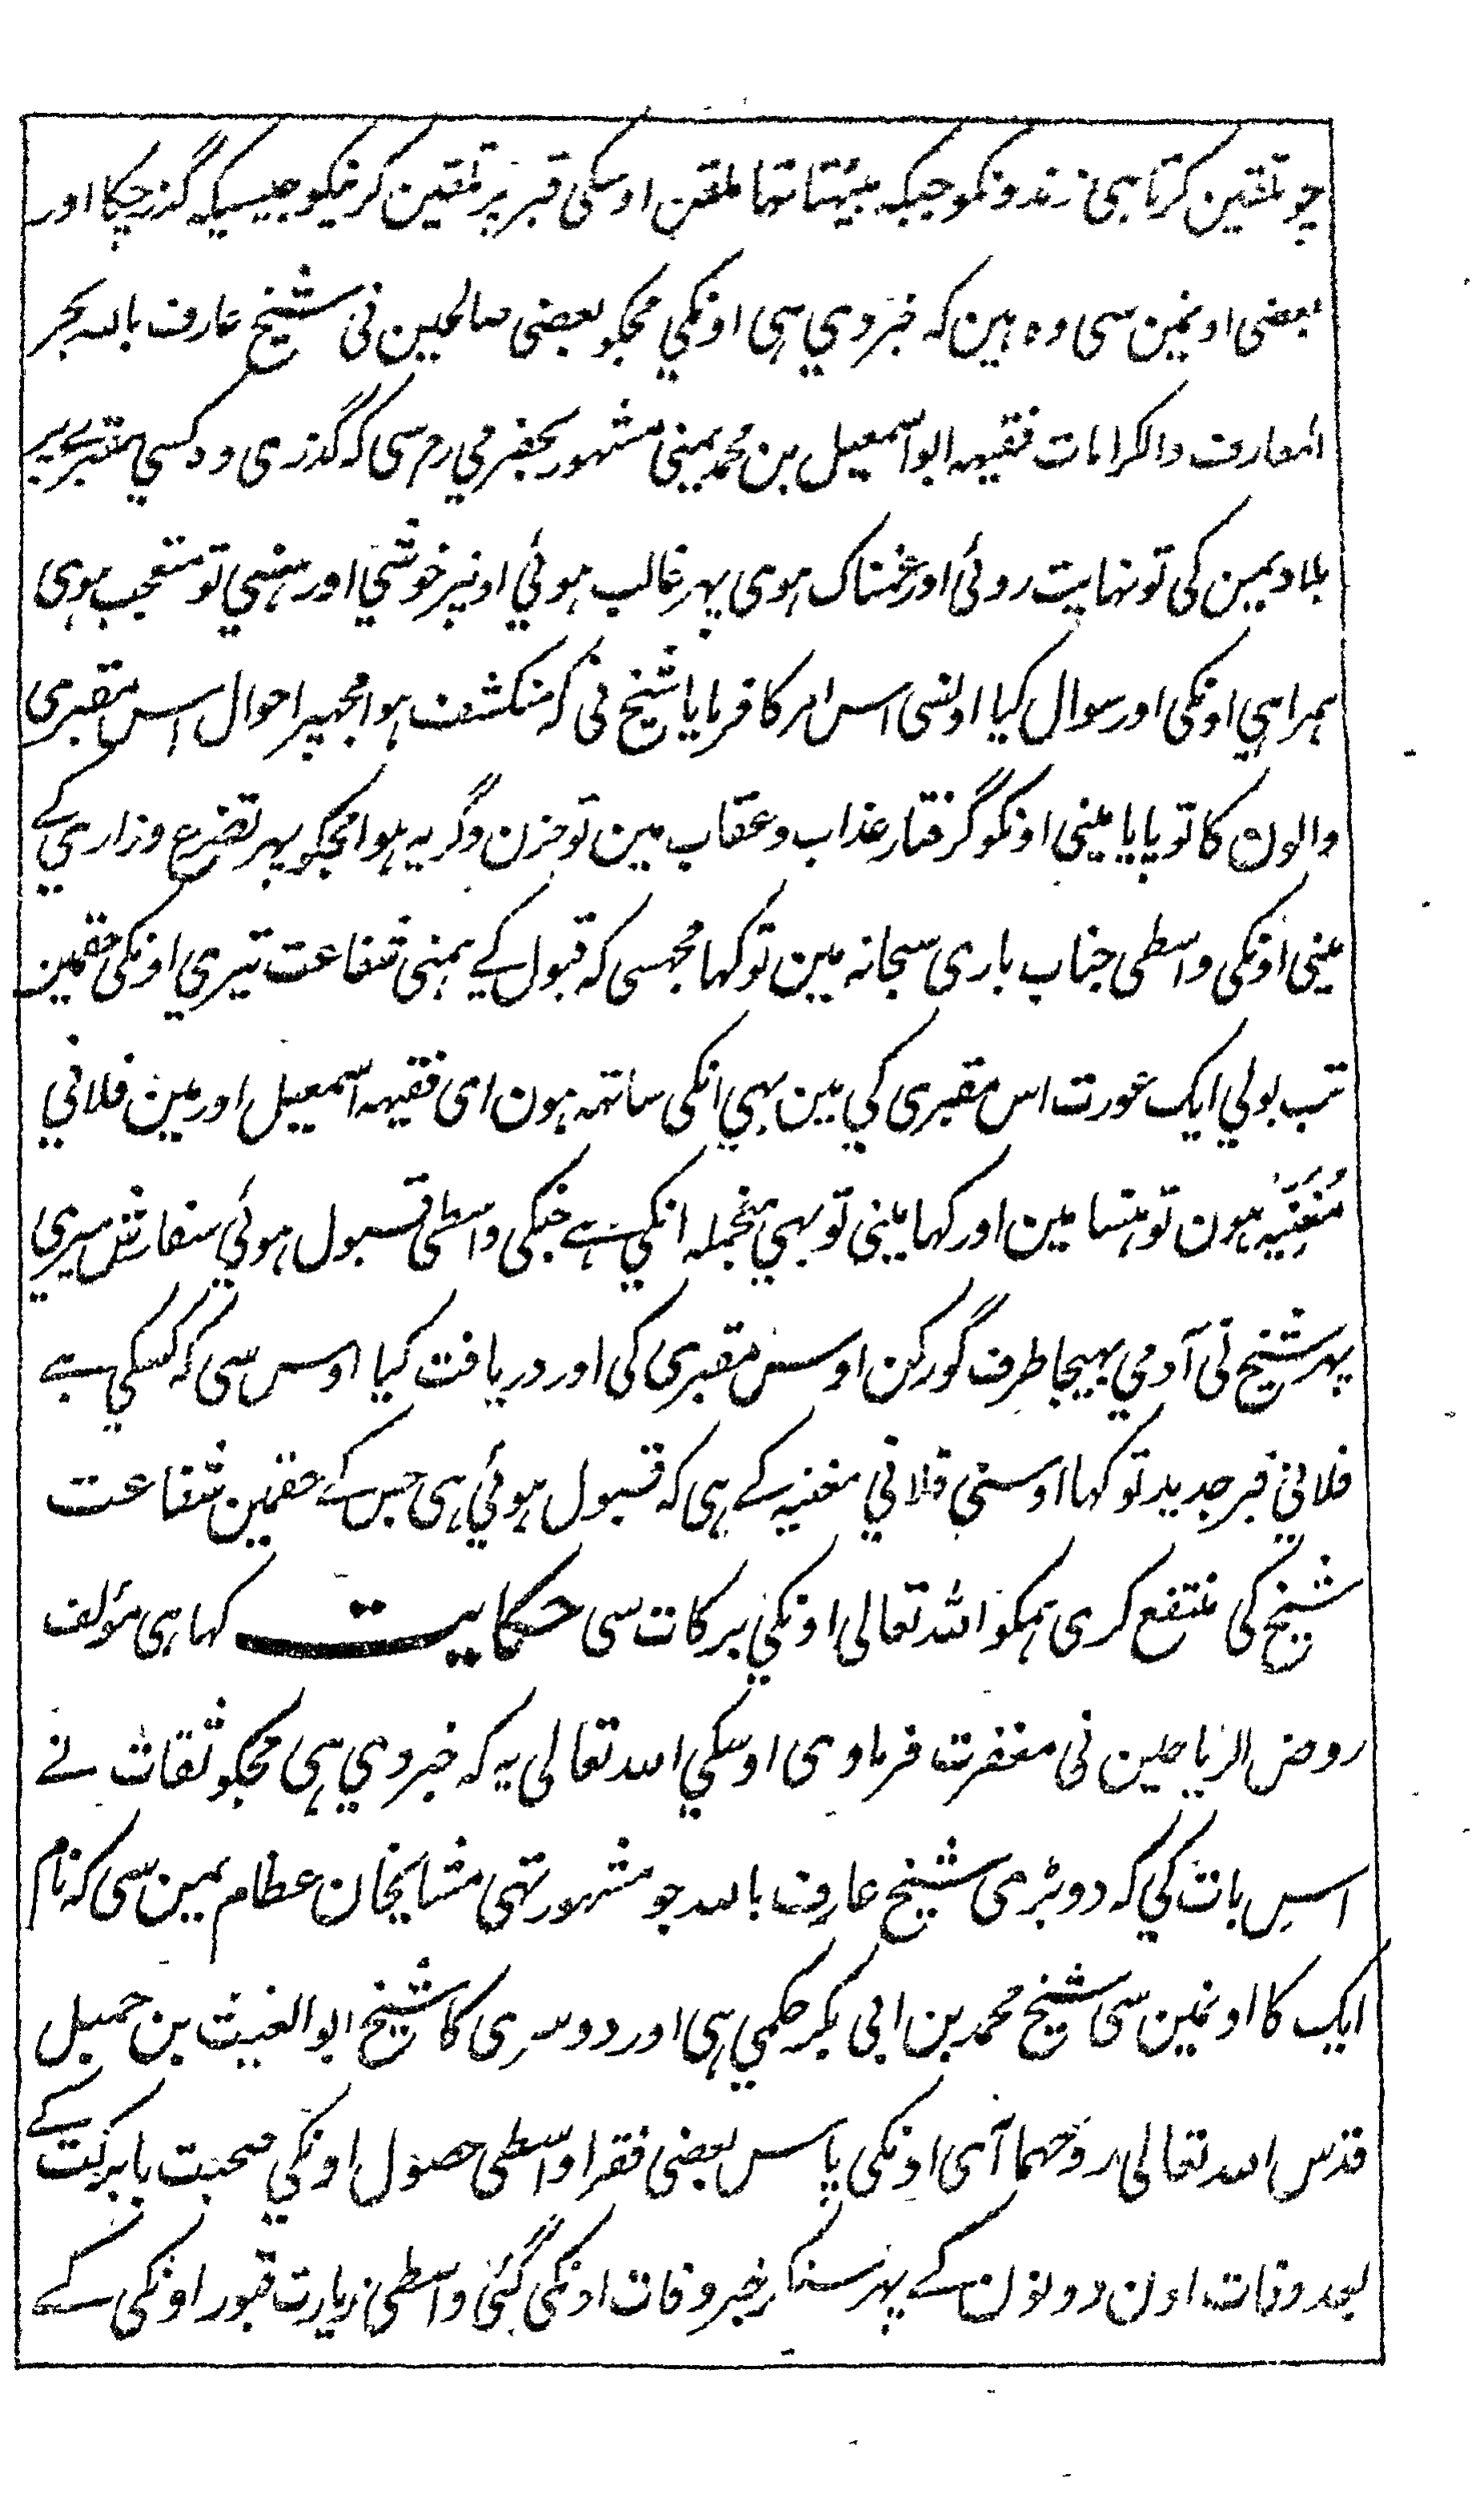 جو تلقین کرتا ہی زندونکو جبکہ بیٹہتا تہا ملقن اوسکی قبر پر تلقین کرنیکو جیسیکہ گذر چکا اور
بعضی اونمین سی وہ ہین کہ خبر دي ہی اونکي مجکو بعضی صالحین نی شیخ عارف باللہ بحر
المعارف والکرامات فقیہہ ابو اسمعیل بن محمد یمنی مشہور بحضرمي رم سی کہ گذری وہ کسي مقبرے پر
بلاد یمین کی تو نہایت روئی اور غمناک ہوی پہر غالب ہوئي اونپر خوشي اور ہنسي تو متعجب ہوی
ہمراہي اونکی اور سوال کیا اونسی اس امر کا فرمایا شیخ نی کہ منکشف ہوا مجہپر احوال اس مقبری
والون کا تو پایا مینی اونکو گرفتار عذاب و عقاب مین تو حزن و گریہ ہوا مجکو پہر تضرع و زاري کے
مینی اونکی واسطی جناب باری سبحانہ مین تو کہا مجہسی کہ قبول کے ہمنی شفاعت تیري اونکی حقمین
تب بولي ایک عورت اس مقبری کي مین بہي انکی ساتہہ ہون ای فقیہہ اسمعیل اور مین فلاني
مُغَنِّیَہ ہون تو ہنسا مین اور کہا مینی تو بہي منجملہ انکي ہے جنکی واسطی قبول ہوئي سفارش میري
پہر شیخ نی آدمي بہیجا طرف گورکن اوس مقبری کی اور دریافت کیا اوس سی کہ کسکي ہے
فلاني قبر جدید تو کہا اوسني فلاني مغنیہ کے ہی کہ قبول ہوئي ہی جس کے حقمین شفاعت
شیخ کی منتفع کری ہمکو اللہ تعالی اونکي برکات سی حکایت کہا ہی مؤلف
روض الریاحین نی مغفرت فرماوی اوسکي اللہ تعالی یہ کہ خبر دي ہی مجکو ثقات نے
اس بات کي کہ دو بڑی شیخ عارف باللہ جو مشہور تہی مشایخان عظام یمین سی کہ نام
ایک کا اونمین سی شیخ محمد بن ابی بکر حکمي ہی اور دوسری کا شیخ ابو الغیث بن جمیل
قدس اللہ تعالی روحہما آی اونکی پاس بعضی فقرا واسطی حصول اونکي صحبت بابرکت کے
بعد وفات اون دونون کے پہر سنکر خبر وفات اونکی گئی واسطی زیارت قبور اونکی کے